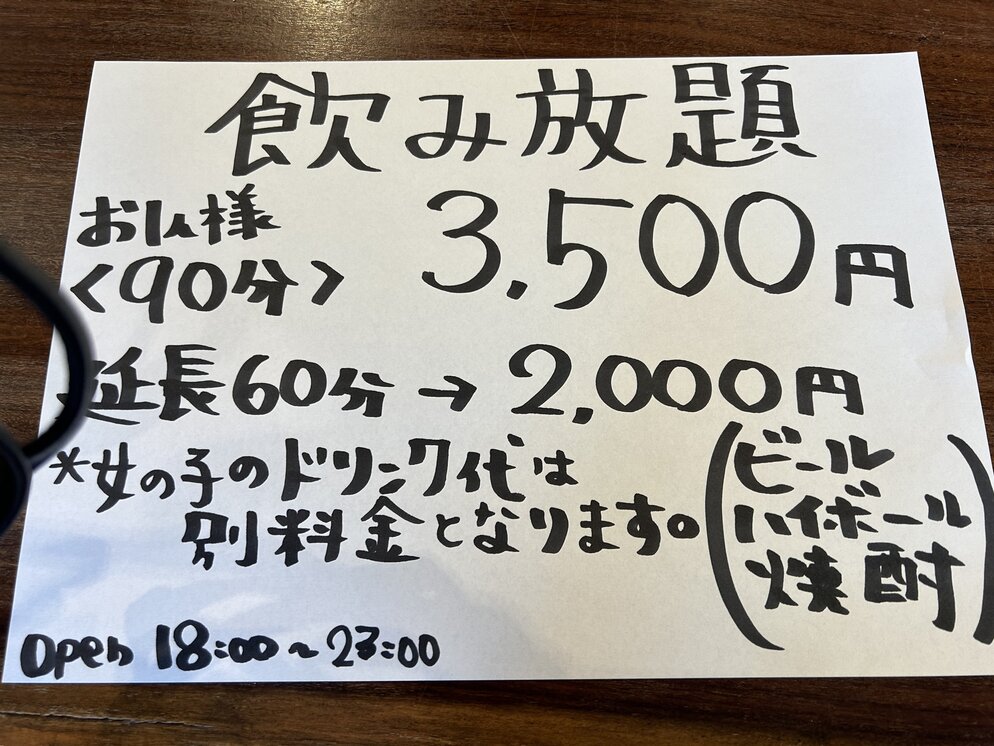 飲み放題
お1人様
<90分> 3,500円
延長60分→2,000円
*女の子のドリンク代は
別料金となります。
(ビール
ハイボール
焼酎)
Open 18:00~23:00